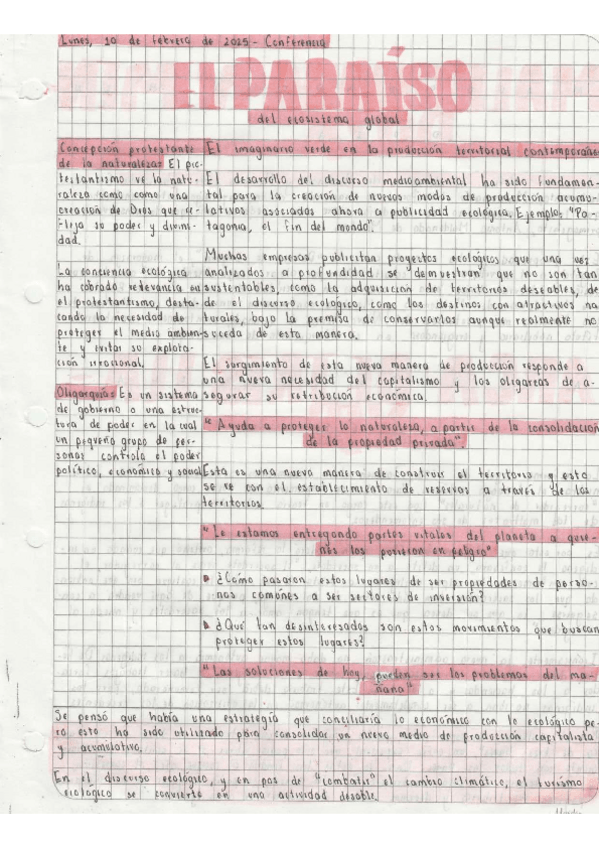 Lunes, 10 de febrero de 2025 - Conferencia
El PARAÍSO
del ecosistema global
Concepción protestante
de la naturaleza: El pro-
testantismo ve la natu-
raleza como como una
creación de Dios que re-
fleja su poder y divini-
dad.
La conciencia ecológica
ha cobrado relevancia en
el protestantismo, desta-
cando la necesidad de
proteger el medio ambien-
te y evitar su explota-
ción irracional.
Oligarquías: Es un sistema
de gobierno o una estruc-
tura de poder en la cual
un pequeño grupo de per-
sonas controla el poder
político, económico y social
El imaginario verde en la producción territorial contemporánea
El desarrollo del discurso medioambiental ha sido fundamen-
tal para la creación de nuevos modos de producción acumu-
lativos asociados ahora a publicidad ecológica. Ejemplo: "Pa-
tagonia, el fin del mundo".
Muchas empresas publicitan proyectos ecológicos que una vez
analizados a profundidad se demuestran que no son tan
sustentables, como la adquisición de territorios deseables, des-
de el discurso ecológico, como los destinos con atractivos na-
turales, bajo la premisa de conservarlos aunque realmente no
suceda de esta manera.
El surgimiento de esta nueva manera de producción responde a
una nueva necesidad del capitalismo y los oligarcas de a-
segurar su retribución económica.
"Ayuda a proteger la naturaleza, a partir de la consolidación
de la propiedad privada".
Esta es una nueva manera de construir el territorio y esto
se ve con el establecimiento de reservas a través de los
territorios.
"Le estamos entregando partes vitales del planeta a quie-
nes los pusieron en peligro"
¿Cómo pasaron estos lugares de ser propiedades de perso-
nas comúnes a ser sectores de inversión?
¿Qué tan desinteresados son estos movimientos que buscan
proteger estos lugares?
"Las soluciones de hoy, pueden ser los problemas del ma-
ñana"
Se pensó que había una estrategia que conciliaría lo económico con lo ecológico pe-
ro esto ha sido utilizado para consolidar un nuevo medio de producción capitalista
y acumulativo.
En el discurso ecológico, y en pos de "combatir" el cambio climático, el turismo
ecológico se convierte en una actividad